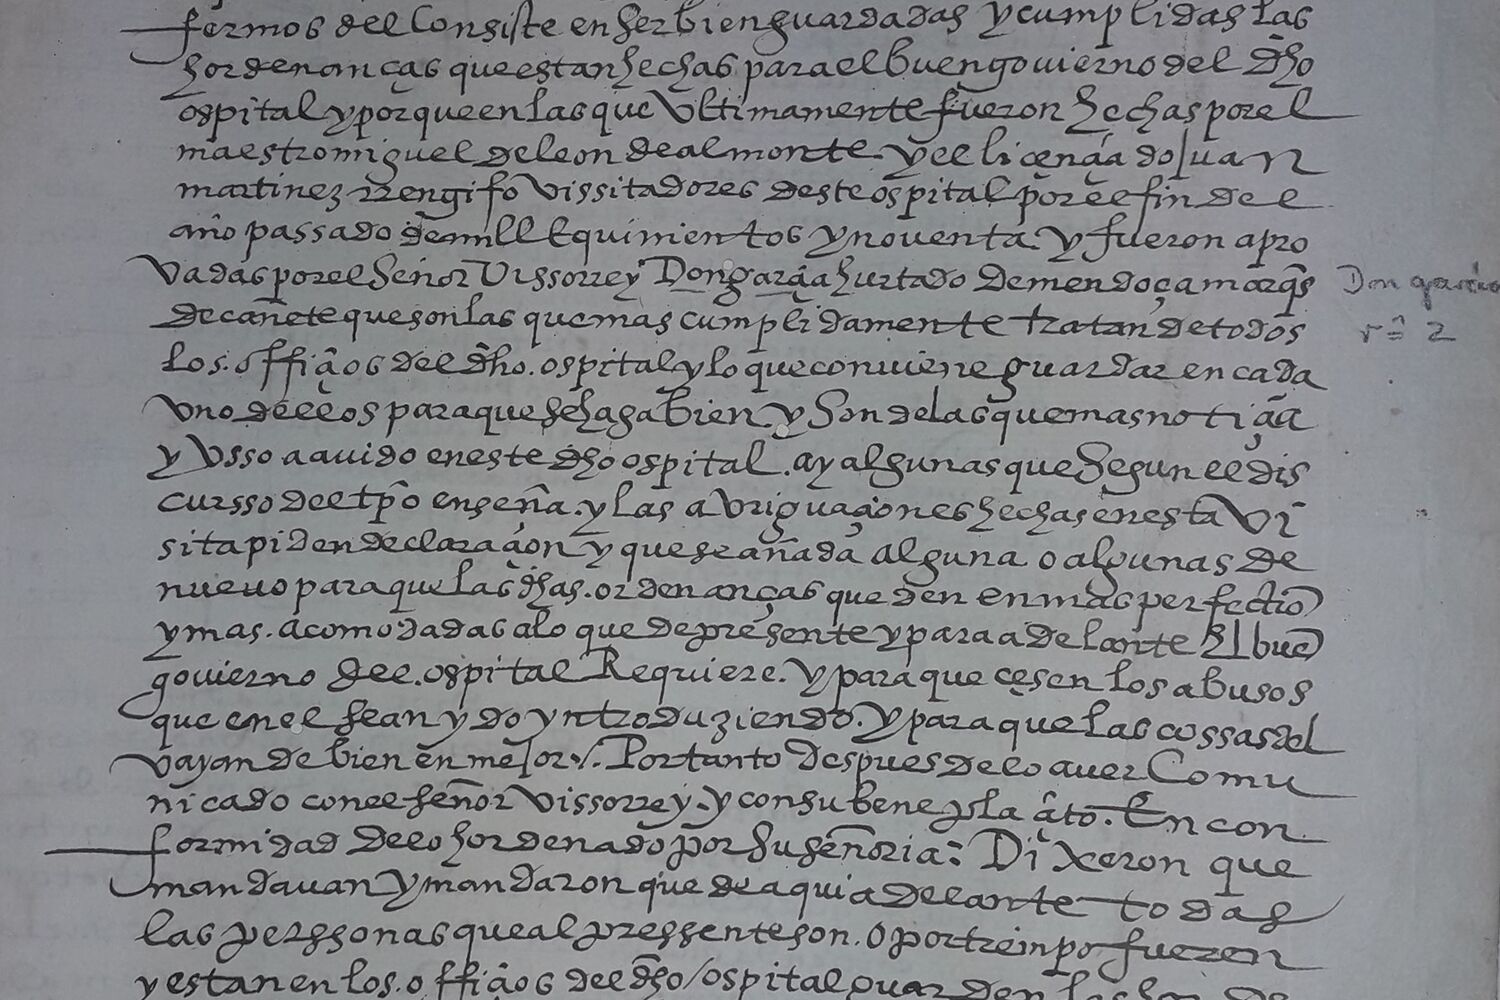 fermos del Consiste en ser bien guardadas y cumplidas las
hordenanças que estan hechas para el buen govierno del dho
ospital y porque en las que Ultimamente fueron hechas por el
maestro miguel de leon de almonte. y el licençiado Juan
martinez rrengifo vissitadores deste ospital por el fin del
año passado de mill E quinientos y noventa. y fueron apro
vadas por el Señor Vissorrey Don garçia hurtado de mendoça marqs
de cañete que son las que mas cumplidamente tratan de todos
los. offiçios del dho. ospital y lo que conviene guardar en cada
vno dellos para que se haga bien. y Son de las que mas notiçia
y Vsso a auido en este dho ospital. ay algunas que Segun el dis
cursso del tpo enseña. y las averiguaçiones hechas en esta Vi
sita piden declaraçion y que se añada alguna o algunas de
nuevo para que las dhas. ordenanças queden en mas perfectio
y mas. acomodadas a lo que de presente y para adelante El bue
govierno del. ospital Requiere. y para que çesen los abusos
que en el sean ydo yntroduziendo. y para que las cossas del
vayan de bien en mejor ./. Por tanto despues de lo aver Comu
nicado con el Señor Vissorrey. y con su beneplaçito. En con
formidad de lo hordenado por Su Señoria: Dixeron que
mandavan y mandaron que de aqui adelante todas
las perssonas que al pressente son. o por treinpo fueren
y estan en los. offiçios del dho ospital guarden las
Don garcia
2